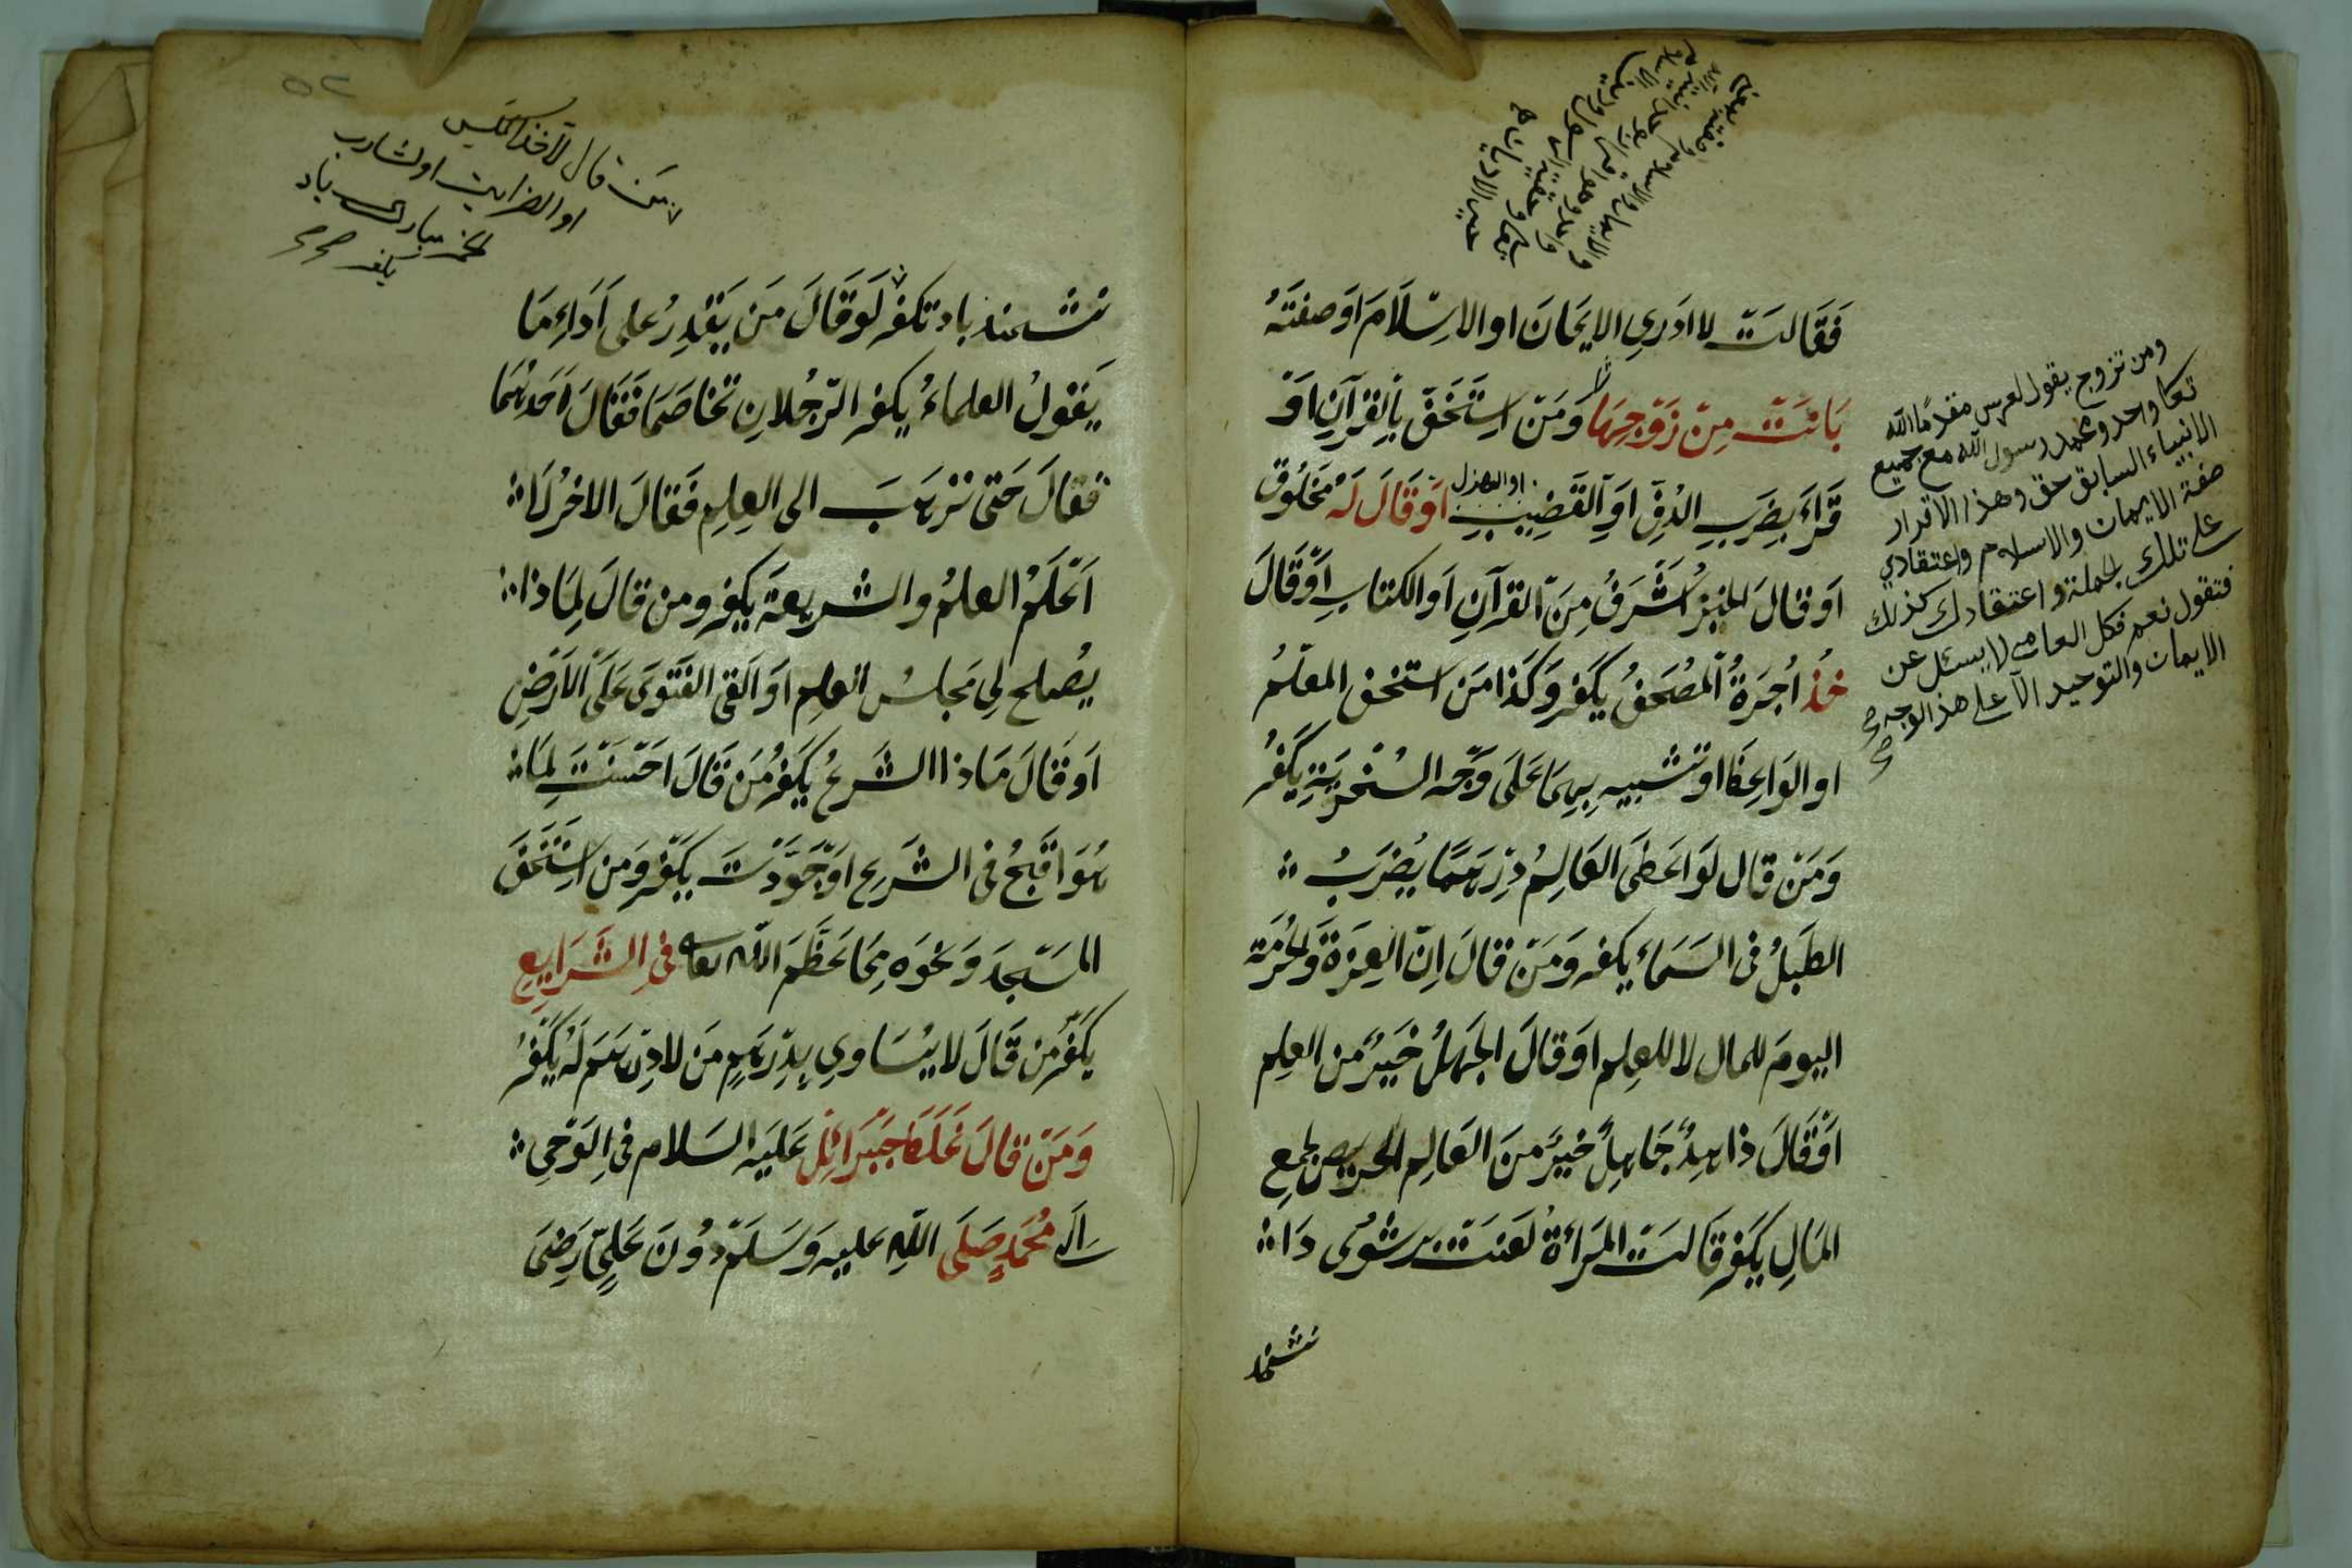 فَقَالَتْ لا ادَرِي الايَمَانَ او الاسِلَامَ اوَصفَتَهُ
بَانَتْ مِنْ زَوْجِهَا وَمَنْ اسِتَخَفَّ بِالقرْآنِ اوْ
قَرَاءَ بِضَرَبِ الدُفِّ اوَالقَضِيْبِ او الغزل اوَقَالَ لَهُ مَخْلُوقٌ
اوَقالَ الخُبْزُ اَشْرَفُ مِنَ القرآنِ اوَالكتابِ اوْقَالَ
خُذْ اُجرَةُ المُصْحَفُ يكَفر وَكَذا مَن استخف المعلّمُ
او الوَاعِظَ او تشبيه بِهِمَا عَلَى وَجْه السُخْرِيَةِ يَكْفُرُ
وَمَنْ قال لَوَ اعَطىَ العَالِمُ دِرْهَمًا يُضْرَبُ
الطبَلُ فى السَمَاءِ يكفر وَمَنْ قالَ اِنّ العِزةَ وَالحُرْمَة
اليومَ للمال لا للعِلم اوَقالَ الجَهلُ خَيْرٌ من العِلم
اَوْقَالَ ذاهِدٌ جَاهِلٌ خيرٌ منَ العَالِم الحَريصِ لجمعِ
المَالِ يكَفر قَالَتْ المَرَأةُ لَعنَتْ بر شوى دَا
نشمند
ومن تزوج يقول لعرس مقدمًا الله
تعا واحد ومحمد رسول الله مع جميع
الانبياء السابق حق وهذا الاقرار
صفة الايمان والاسلام واعتقادي
على تلك الجملة واعتقادك كذلك
فتقول نعم فكل العامى لا يسئل عن
الايمان والتوحيد الا على هذ الوجه
نشمند باد تكفر لَوقَالَ مَن يَقْدِرُ على اَدَاءِ مَا
يَقولُ العلماءُ يكفر الرّجُلانِ تخاصَمَا فَقَالَ احَدهُمَا
فقالَ حَتى نَذهَبَ الى العِلِم فَقالَ الاخرُ لَا
اَعْلَمُ العلمُ والشريعةَ يكفر ومن قالَ لِمَاذا
يُصْلح لي مَجلسُ العِلم اوَالَقى الفَتْوىَ عَلَى الاَرْضِ
اوَقَالَ مَاذا الشَرعُ يكَفرُ مَن قَالَ احَسَنَتَ لِمَا
هُوَ اقبَحُ فى الشَرِعِ اوْجَوَّدْتَ يكفر وَمن اسِتخَفَّ
المسْجِدَ وَنحْوَه مِمّا عَظَّمَ اللّه تعا فى الشَرَايِعِ
يكَفُر مَن قَالَ لا يُسَاوِي بِدِرْهَمٍ مَن لا دِرْهَمَ لَهُ يكفُر
وَمَنْ قالَ غَلَطَ جَبَرَائِلَ عَلَيه السَلام فى الوَحْىِ
الَى مُحَمدٍ صَلَى اللّهِ عليه وَسَلَمَ دُونَ عَلىٍّ رَضِىَ
من قال لآخذ المكس
او الضرايب او لشارب
الخمر مبارك باد
يكفر